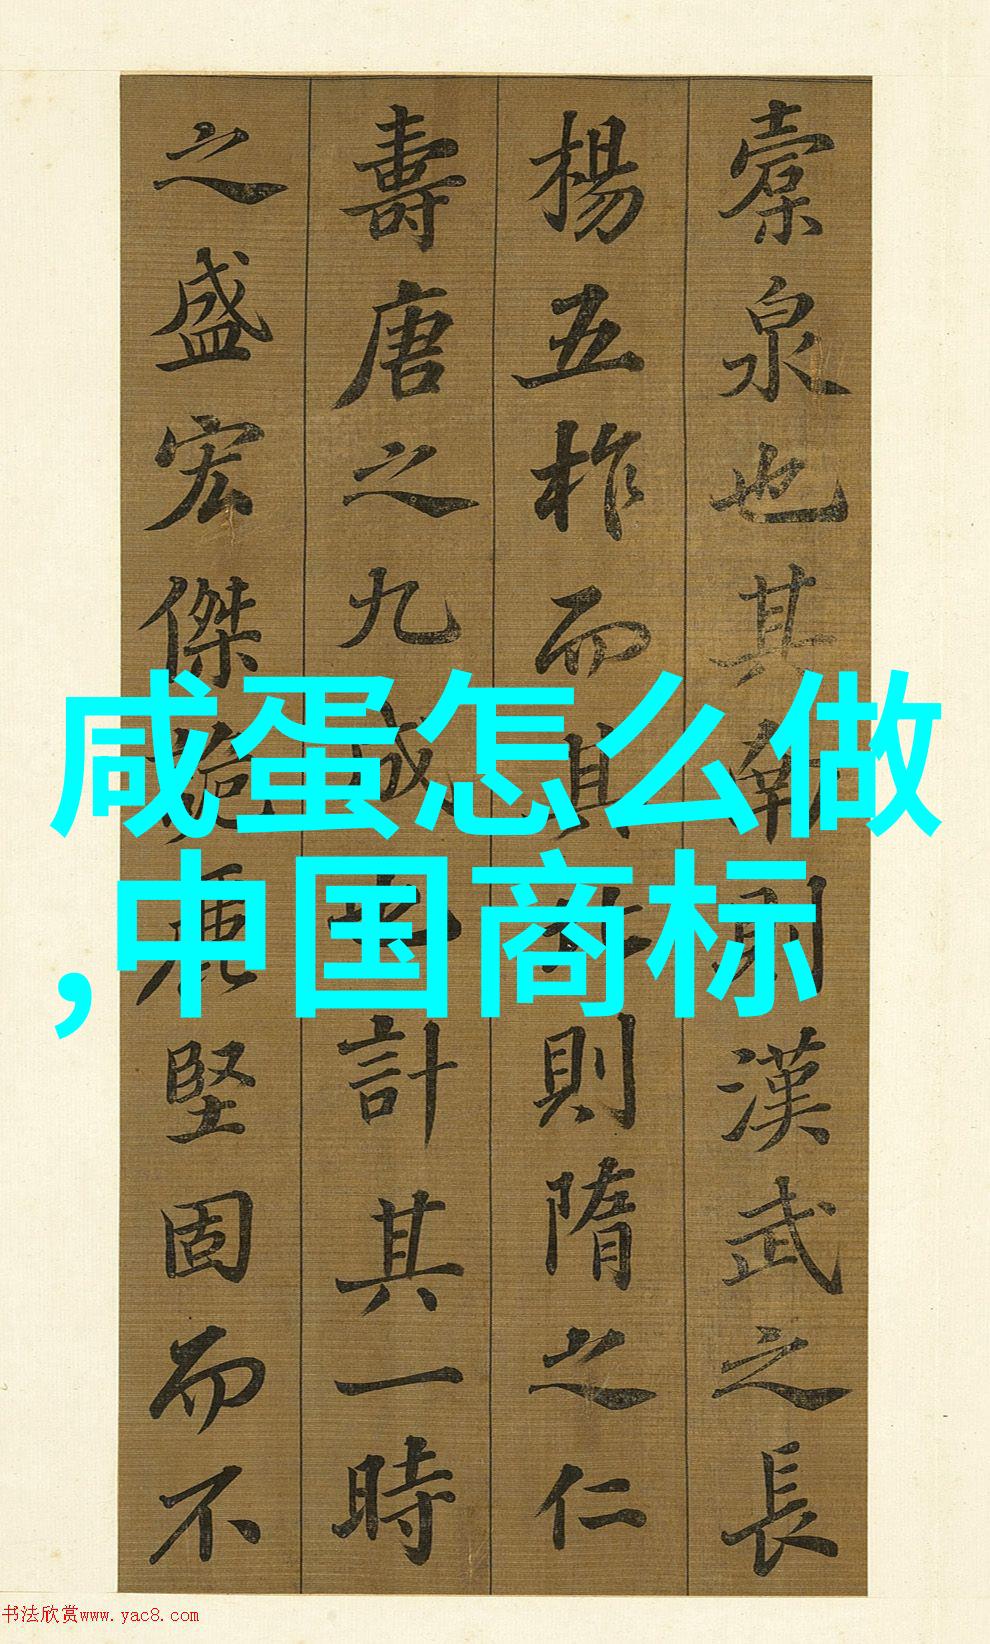 槖泉也其南則漢武之長
楊五柞而其北則隋之仁
壽唐之九成也計其一時
之盛宏傑詭麗堅固而不
咸蛋怎么做
,中国商标
书法欣赏www.yac8.com